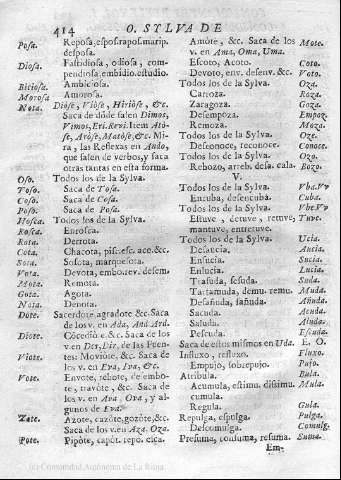 414 O. SYLVA DE
Posa. Reposa, espos. rapos. marip.
desposa.
Diosa. Fastidiosa, odiosa, com-
pendiosa, embidio. estudio.
Biciosa. Ambiciosa.
Morosa Amorosa.
Nota. Diòse, Viòse, Hiriòse, &c.
Saca de dóde salen Dimos,
Vimos, Eri. Revi. Item Atò-
se, Aròse, Matòse, &c. Mi-
ra, las Reflexas en Ando,
que salen de verbos, y saca
otras tantas en esta forma.
Oso. Todos los de la Sylva.
Toso. Saca de Tosa.
Coso. Saca de Cosa.
Poso. Saca de Posa.
Hosca. Todos los de la Sylva.
Rosca. Enrosca.
Rota. Derrota.
Cota. Chacota, pisc. esc. ace. &c.
Sota. Sosota, marquesota.
Vota. Devota, embo. rev. desem.
Mota. Remota.
Gota. Agota.
Nota. Denota.
Dote. Sacerdote. agradote &c. Saca
de los v. en Ada, And Ard.
Diote. Cócediòte &c. Saca de los
v. en Der, Dir, de las Puen-
Viote. tes: Moviòte, &c. Saca de
los v. en Eva, Iva, &c.
Vote. Envote, rebote, de embo-
te, travòte, &c. Saca de
los v. en Ava, Ova, y al-
gunos de Eva.
Zote. Azote, cazòte, gozòte, &c.
Saca de los v. en Aza. Oza.
Pote. Pipòte, capòt. repo. ciça.
Amòte, &c. Saca de los Mote.
v. en Ama, Oma, Uma.
Escoto, Acoto. Coto.
Devoto, env. desenv. &c. Voto.
Todos los de la Sylva. Oza.
Carroza. Roza.
Zaragoza. Goza.
Desempoza. Empoz.
Remoza. Moza.
Todos los de la Sylva. Oze.
Desconoce, reconoce. Conoce.
Todos los de la Sylva. Ozo.
Rebozo, arreb. desa. cala. Bozo.
V.
Todos los de la Sylva. Vba. Vv
Encuba, desencuba. Cuba.
Todos los de la Sylva. Vbe. Vv
Estuve, detuve, retuve, Tuve.
mantuve, entretuve.
Todos los de la Sylva. Ucia.
Desaucia. Aucia.
Ensucia. Sucia.
Enlucia. Lucia.
Trasuda, sesuda. Suda.
Tartamuda, demu. remu. Muda.
Desañuda, sañuda. Añuda.
Sacuda. Acuda.
Saluda. Aluda.
Pescuda. Escuda.
Saca de estos mismos en Uda. E. O.
Influxo, refluxo. Fluxo.
Empujo, sobrepujo. Pujo.
Atribula. Bula.
Acumula, estimu. disimu. Mula.
simula.
Regula. Gula.
Repulga, espulga. Pulga.
Descomulga. Comulg.
Presuma, consuma, resuma. Suma.
Em-
(c) Comunidad Autónoma de La Rioja